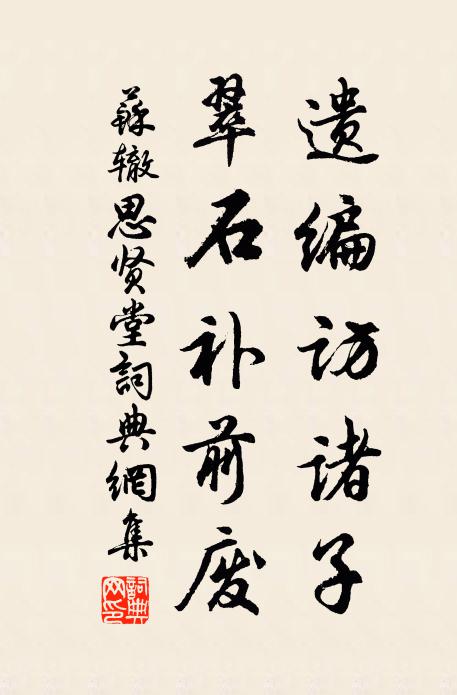 遗编访诸子
翠石补前废
蘇辙思贤堂詞典網集
詞典网印